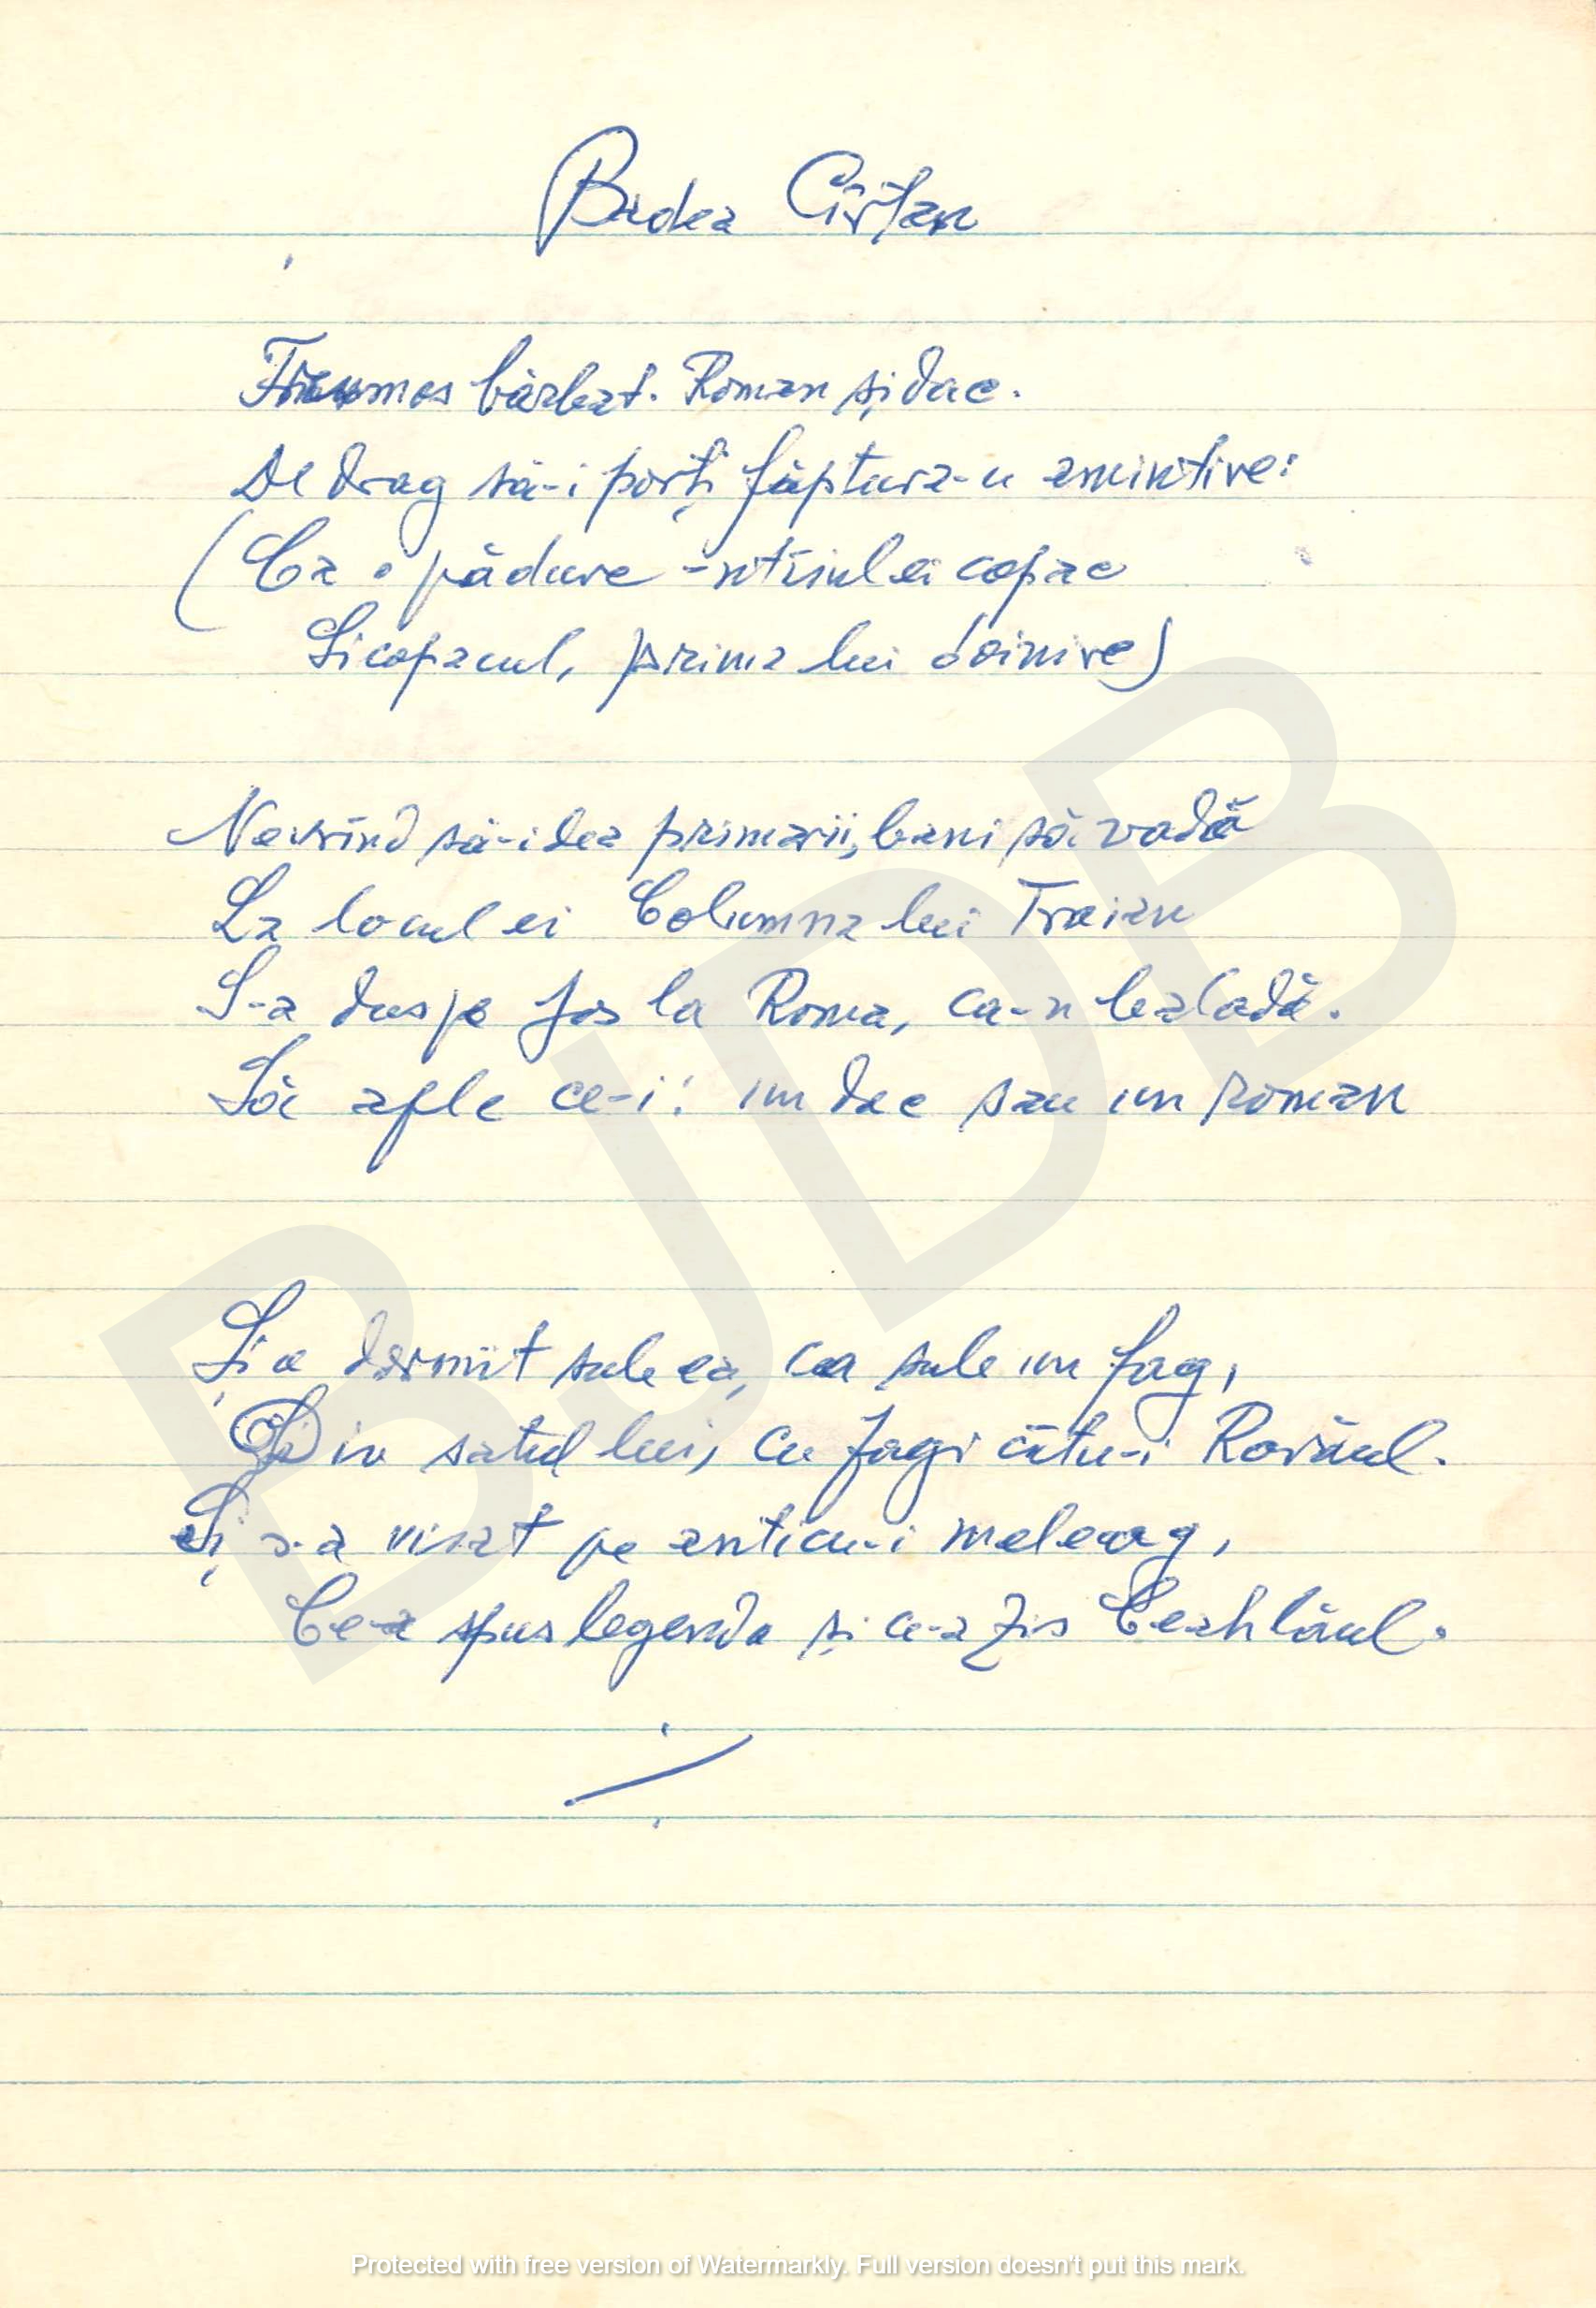 Badea Cîrțan
Frumos bărbat. Roman și dac.
De drag să-i porți făptura-n amintire:
(Ca o pădure-ntîiul ei copac
Și copacul, prima lui doinire)
Nevrînd să-i dea primarii, bani să vadă
La locul ei Columna lui Traian
S-a dus pe jos la Roma, ca-n baladă.
Să afle ce-i: un dac sau un roman
Și a dormit sub ea, ca sub un fag,
Din satul lui, cu fagi cîtu-i Rovinul.
Și s-a visat pe anticu-i meleag,
Ce-a spus legenda și ce-a zis Ceahlăul.
BJDB
Protected with free version of Watermarkly. Full version doesn't put this mark.